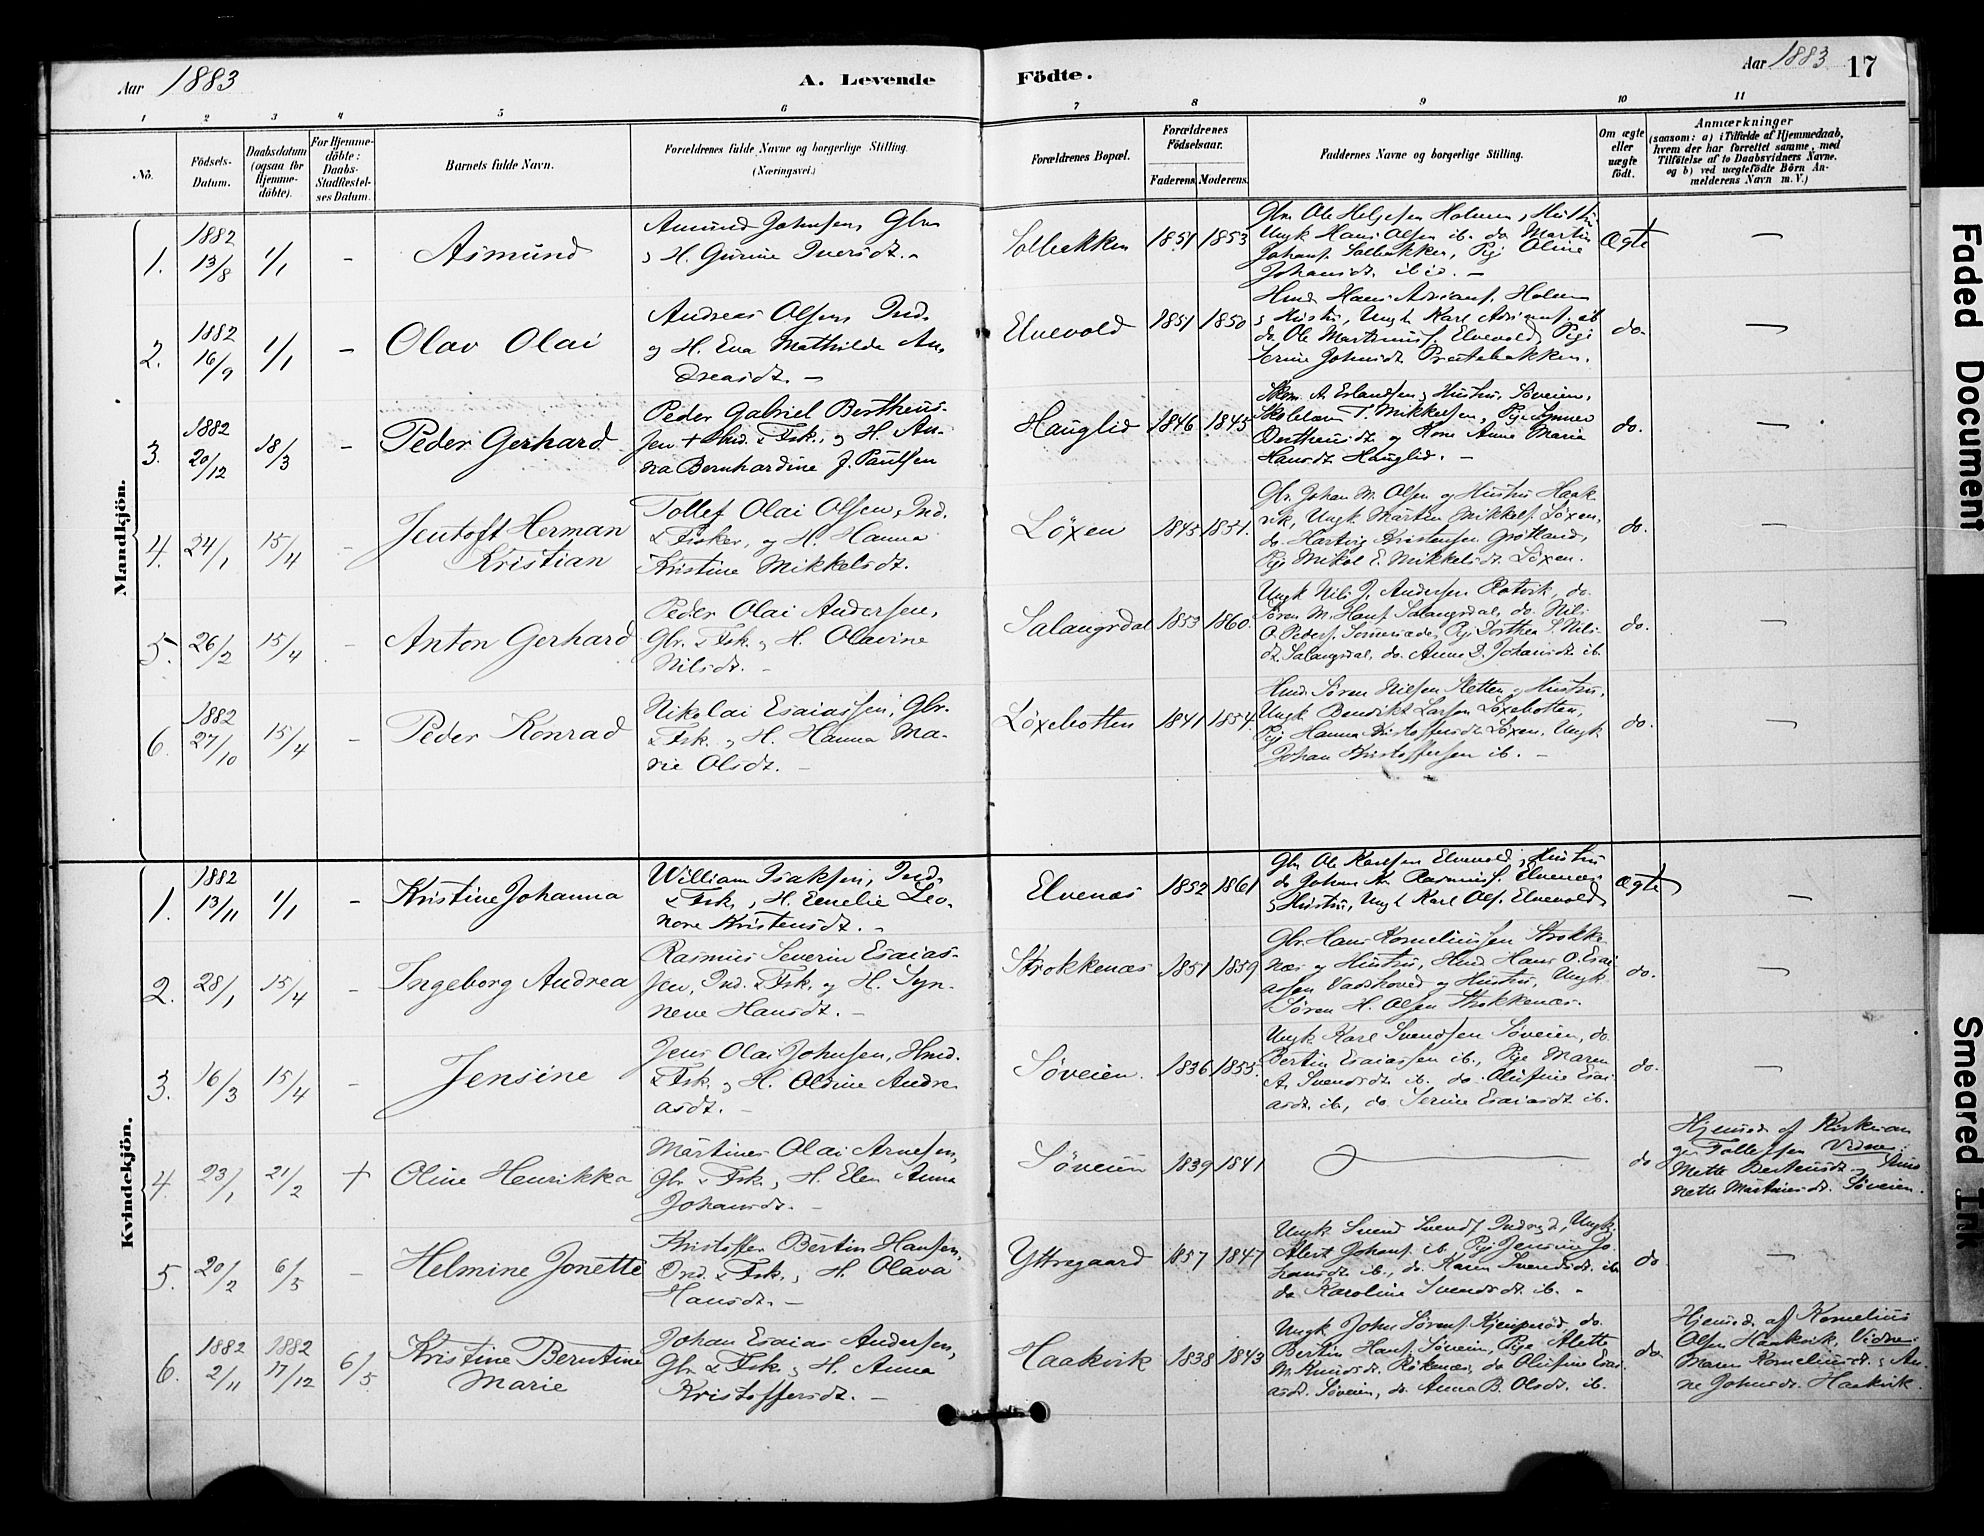 Aar 1883
A. Levende Födte.
Aar 1883 17
1 2 3 4 5 6 7 8 9 10 11
No.
Födsels-
Datum.
Daabsdatum
(ogsaa for
Hjemme-
döbte).
For Hjemme-
döbte:
Daabs-
Stadfæstel-
ses Datum.
Barnets fulde Navn.
Forældrenes fulde Navne og borgerlige Stilling.
(Næringsvei.)
Forældrenes Bopæl.
Forældrenes
Födselsaar.
Faderens. Moderens.
Faddernes Navne og borgerlige Stilling.
Om ægte
eller
uægte
födt.
Anmærkninger
(saasom: a) i Tilfælde af Hjemmedaab,
hvem der har forrettet samme, med
Tilföielse af to Daabsvidners Navne.
og b) ved uægtefödte Börn An-
melderens Navn m. V.)
Mandkjön.
1. 1882 13/8 1/1 - Asmund
Amund Johnsen Gbr
og H. Gurine Iversdt. -
Solbakken 1851 1853
Gbr Ole Helgesen Holmen og Hustru
Ungk Hans Olsen ib. do Martin
Johans. Solbakken, Pige Oline
Johansdt ibid. -
Ægte -
2. 1882 16/9 1/1 - Olav Olai
Andreas Olsen Ind.
og H. Eva Mathilde An-
dreasdt. -
Elvevold 1851 1850
Hmd Hans Adrians. Holmen
og Hustru, Ungk Karl Adrians. ib
do Ole Martinus. Elvevold, Pige
Serine Johnsdt Prestebakken.
do. -
3. 1882 20/12 18/3 - Peder Gerhard
Peder Gabriel Bertheus-
sen + Hmd. & Fsk., og H. An-
na Bernhardine f. Paulsen
Hauglid 1846 1845
A. Erlandsen og Hustru, Søveien,
T. Mikkelsen, Pige
Bertheusdt og Kone Anne Maria
Hansdt Hauglid. -
do. -
4. 24/1 15/4 - Jentoft Herman
Kristian
Tollef Olai Olsen, Ind.
& Fisker, og H. Hanna
Kristine Mikkelsdt.
Løxen 1845 1851.
Gbr. Johan M. Olsen og Hustru Haak-
vik, Ungk. Martin Mikkels. Løxen,
do. Hartvig Kristensen Grøtland,
Pige Mikal E. Mikkelsdt Løxen.
do. -
5. 26/2 15/4 - Anton Gerhard
Peder Olai Andersen,
Gbr. & Fsk. og H. Olavine
Nilsdt. -
Salangsdal 1853 1860.
Ungk Nils J. Andersen Rotvik, do.
Søren M. Hans. Salangsdal, do. Nils
O. Peders. Pige Dorthea S. Nils-
dt. Salangsdal, do. Anne D. Johansdt ib.
do. -
6. 1882 27/10 15/4 - Peder Konrad
Nikolai Esaiassen, Gbr.
& Fsk. og H. Hanna Ma-
rie Olsdt. -
Løxebotten 1841 1854.
Hmd. Søren Nilsen Sletten og Hustru,
Ungk Benedikt Larsen Løxebotten,
Pige Hanna Kristoffersdt Løxen, Ungk
Johan Kristoffersen ib. -
do. -
Kvindekjön.
1. 1882 13/11 1/1 - Kristine Johanna
William Isaksen, Ind.
& Fsk. og H. Emelie Leo-
nore Kristensdt. -
Elvenæs 1852 1861
Gbr Ole Karlsen Elvevold og Hustru
do Johan Kr. Rasmus. Elvenæs
og Hustru, Ungk Karl Ols. Elvevold
Ægte -
2. 28/1 15/4 - Ingeborg Andrea
Rasmus Severin Esaias-
sen, Ind. & Fsk. og H. Syn-
neve Hansdt. -
Strokkenæs 1851 1859
Gbr. Hans Korneliussen Strokke-
næs og Hustru, Hmd Hans O. Esai-
assen Vadshoved og Hustru, Ungk
Søren H. Olsen Strokkenæs.
do. -
3. 16/3 15/4 - Jensine
Jens Olai Johnsen, Hmd.
& Fsk. og H. Oldine Andre-
asdt. -
Søveien. 1836 1855.
Ungk. Karl Svendsen Søveien, do.
Bertin Esaiassen ib., Pige Maren
A. Svendsdt ib. do. Olufine Esai-
asdt ib., do Serine Esaiasdt ib.
do. -
4. 23/1 21/2 + Oline Henrikka
Martines Olai Arnesen,
Gbr & Fsk. og H. Elen Anna
Johansdt. -
Søveien 1839 1841
do
Hjemmed. af Kirkesan-
ger Tollefsen Vidne:
Mette Bertheusdt og Anne-
nette Martinesdt. Søveien.
5. 20/2 6/5 - Helmine Jonette
Kristoffer Bertin Hansen,
Ind. & Fsk. og H. Olava
Hansdt. -
Yttregaard 1857 1847
Ungk Svend Svends. Indregd, Ungk
Alert Johans. ib. Pige Jensine Jo-
hansdt ib., do. Karen Svendsdt. ib
do Karoline Svendsdt ib. -
do. -
6. 1882 2/11 1882 17/12 6/5 Kristine Berntine
Marie
Johan Esaias Andersen,
Gbr & Fsk. og H. Anna
Kristoffersdt. -
Haakvik 1838 1843
Ungk John Sørens. do.
Bertin Hans. Søveien, Pige Alette
M. Knudsdt. Røkenæs, do Olufine Esai-
asdt. Søveien, do. Anna B. Olsdt. ib.
do
Hjemmed. af Kornelius
Olsen Haakvik, Vidne:
Maren Korneliusdt. og An-
ne Johnsdt. Haakvik.
Faded Document
Smeared Ink